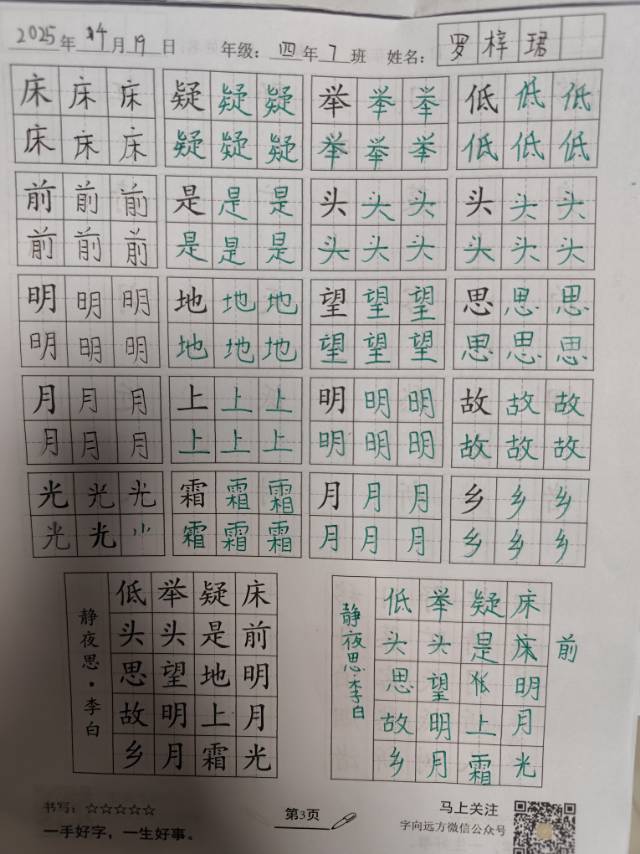 2025年 月19日 年级：四年7班 姓名：罗梓珺
床床床 疑疑疑 举举举 低低低
床床床 疑疑疑 举举举 低低低
前前前 是是是 头头头 头头头
前前前 是是是 头头头 头头头
明明明 地地地 望望望 思思思
明明明 地地地 望望望 思思思
月月月 上上上 明明明 故故故
月月月 上上上 明明明 故故故
光光光 霜霜霜 月月月 乡乡乡
光光 霜霜霜 月月月 乡乡乡
静夜思·李白
床前明月光
疑是地上霜
举头望明月
低头思故乡
静夜思·李白
前
床床明月光
疑是低上霜
举头望明月
低头思故乡
书写：☆☆☆☆☆
一手好字，一生好事。
第3页
马上关注
字向远方微信公众号